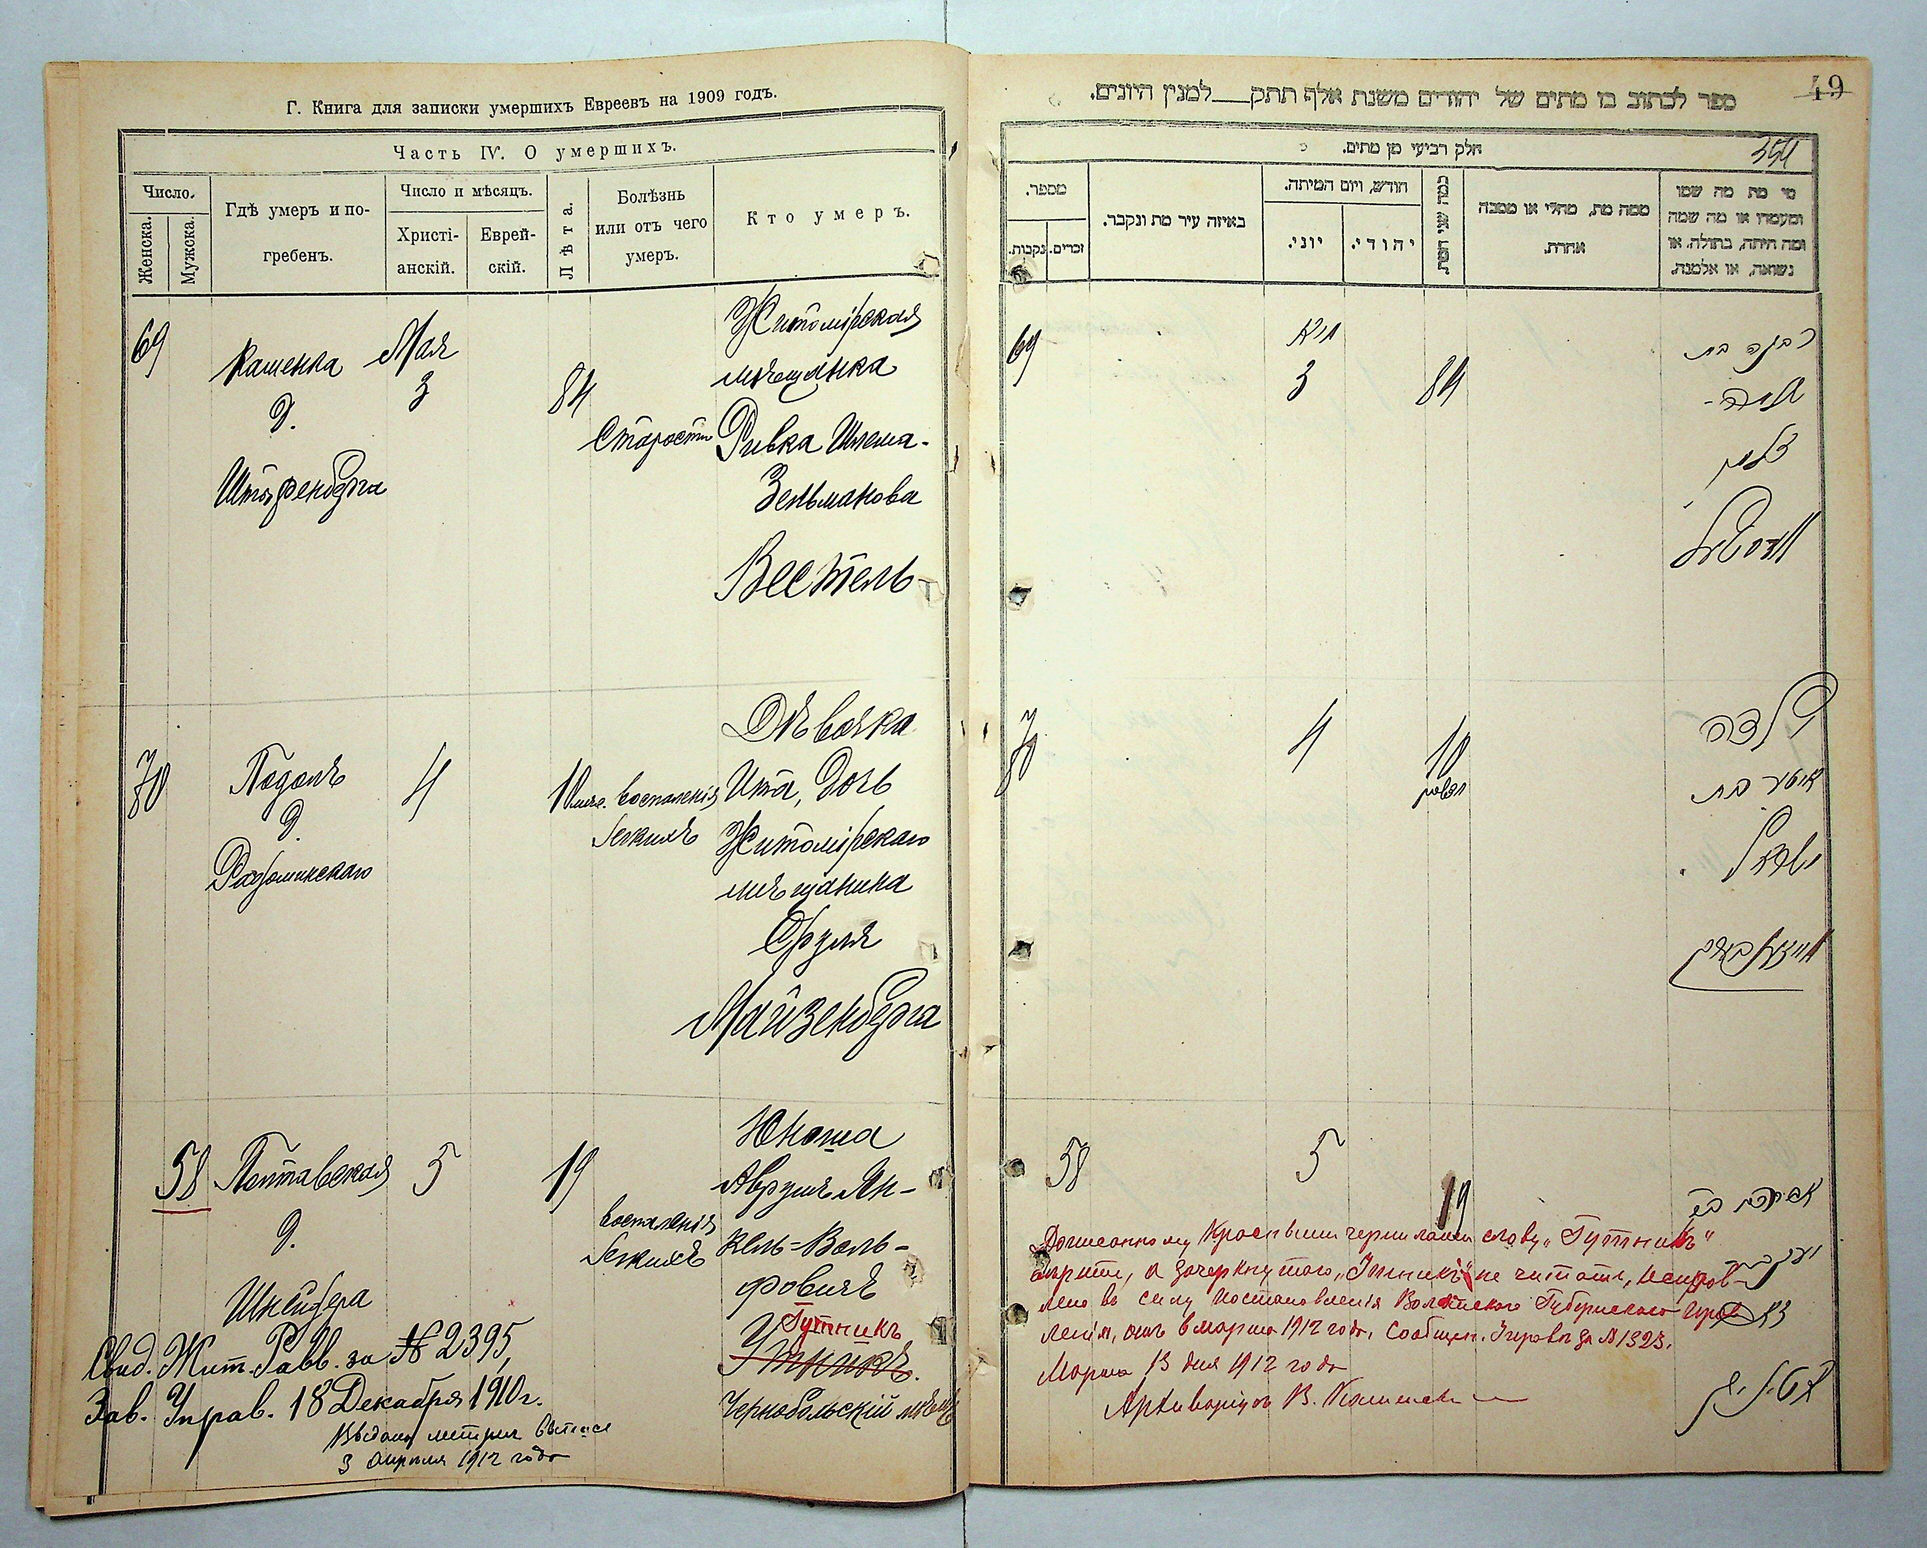 Г. Книга для записки умершихъ Евреевъ на 1909 годъ.
Часть IV. О умершихъ.
Число.
Женска.
Мужска.
Гдѣ умеръ и по-
гребенъ.
Число и мѣсяцъ.
Христі-
анскій.
Еврей-
скій.
Лѣта.
Болѣзнь
или отъ чего
умеръ.
Кто умеръ.
69
Каменка
д.
Штафенберга
Мая
3
84
Старости
Житомірская
мѣщанка
Ривка Шлема-
Зельманова
Вестель
70
Подолъ
д.
4
10 мѣс.
воспаленія
легкихъ
Дѣвочка
Ита, дочь
Житомірскаго
мѣщанина
Сруля
Майзенберга
58
Полтавская
д.
Шнейдера
5
19
воспаленія
легкихъ
Юноша
Аврумъ Ян-
кель-Воль-
фовичъ
Гутникъ
Утникъ.
Чернобыльскій мѣщ.
Свид. Жит. Равв. за № 2395,
Зав. Управ. 18 Декабря 1910 г.
Выдана метрич. выпись
3 апреля 1912 года
49
ספר לכתוב בו מתים של יהודים משנת אלף תתק למנין היונים.
354
חלק רביעי מן מתים.
מספר.
נקבות.
זכרים.
באיזה עיר מת ונקבר.
חודש, ויום המיתה.
יוני.
יהודי.
כמה שני המת.
ממה מת, מחלי או מסבה
אחרת.
מי מת מה שמו
ומעמדו או מה שמה
ומה היתה, בתולה. או
נשואה, או אלמנה.
69
מיא
3
84
רבקה בת
שלמה-
זלמן
וועסטעל
70
4
10
חדשים
ילדה
איטא בת
ישראל
מייזענבערג
58
5
19
אברהם ב"ר
יעקב
זאב
Дописанному красными чернилами слову „Гутникъ"
вѣрить, а зачеркнутаго „Утникъ" не читать, исправ-
лено въ силу постановленія Волынскаго Губернскаго Прав-
ленія, отъ 6 марта 1912 года, сообщен. Управы за № 1323.
Марта 13 дня 1912 года
Архиваріусъ В.